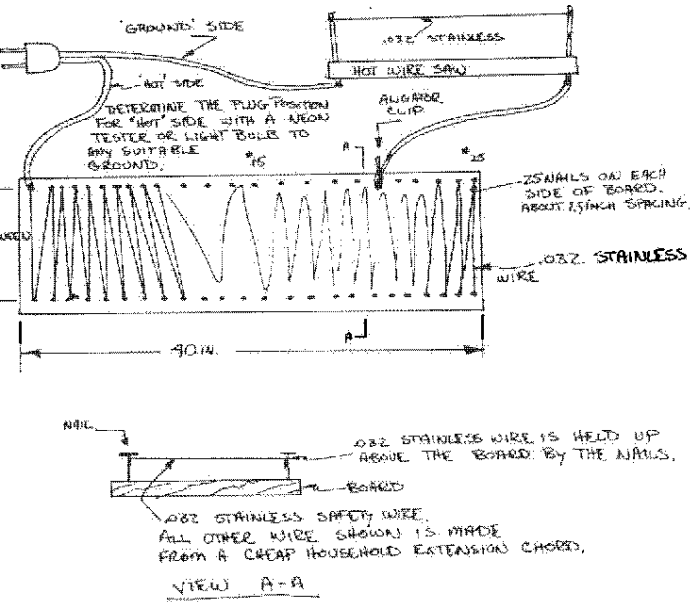 'GROUND' SIDE
.032 STAINLESS
HOT WIRE SAW
'HOT' SIDE
ALIGATOR
CLIP
DETERMINE THE PLUG POSITION
FOR "HOT" SIDE WITH A NEON
TESTER OR LIGHT BULB TO
ANY SUITABLE
GROUND.
#15
A
#25
25 NAILS ON EACH
SIDE OF BOARD.
ABOUT 1.5 INCH SPACING.
.032 STAINLESS
WIRE
A
40 IN.
NAIL
.032 STAINLESS WIRE IS HELD UP
ABOVE THE BOARD BY THE NAILS.
BOARD
.032 STAINLESS SAFETY WIRE.
ALL OTHER WIRE SHOWN IS MADE
FROM A CHEAP HOUSEHOLD EXTENSION CHORD.
VIEW A-A